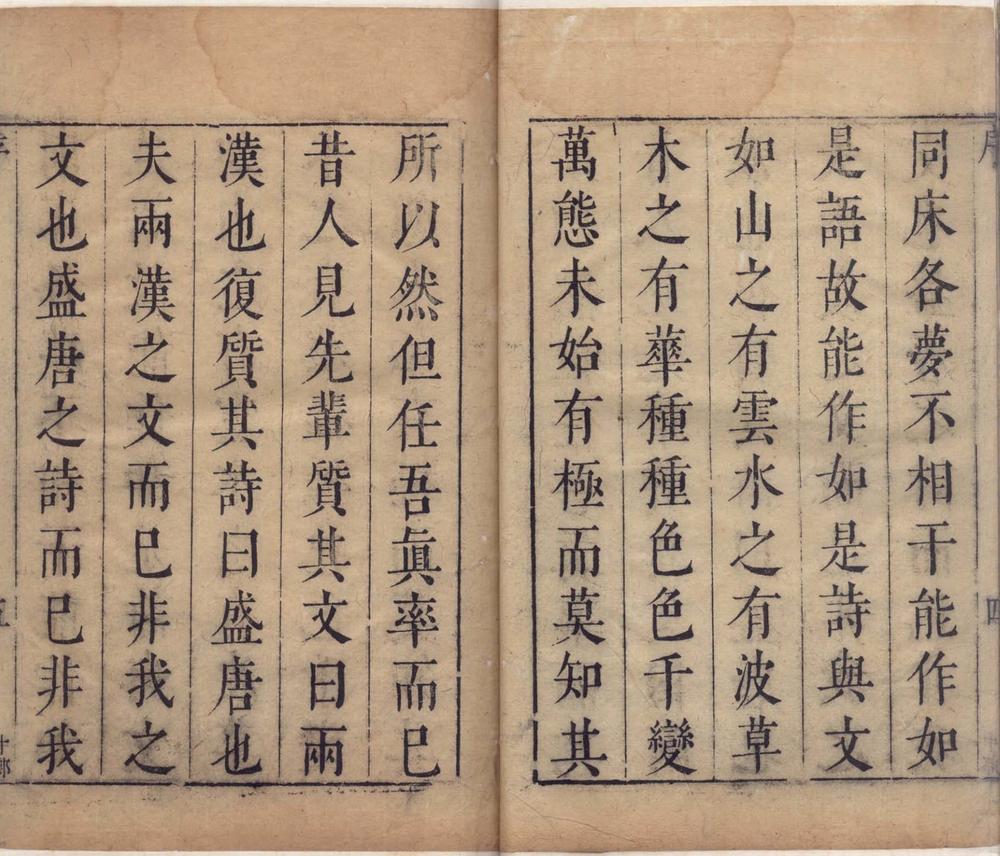 同床各夢不相干能作如
是語故能作如是詩與文
如山之有雲水之有波草
木之有華種種色色千變
萬態未始有極而莫知其
所以然但任吾眞率而已
昔人見先輩質其文曰兩
漢也復質其詩曰盛唐也
夫兩漢之文而已非我之
文也盛唐之詩而已非我